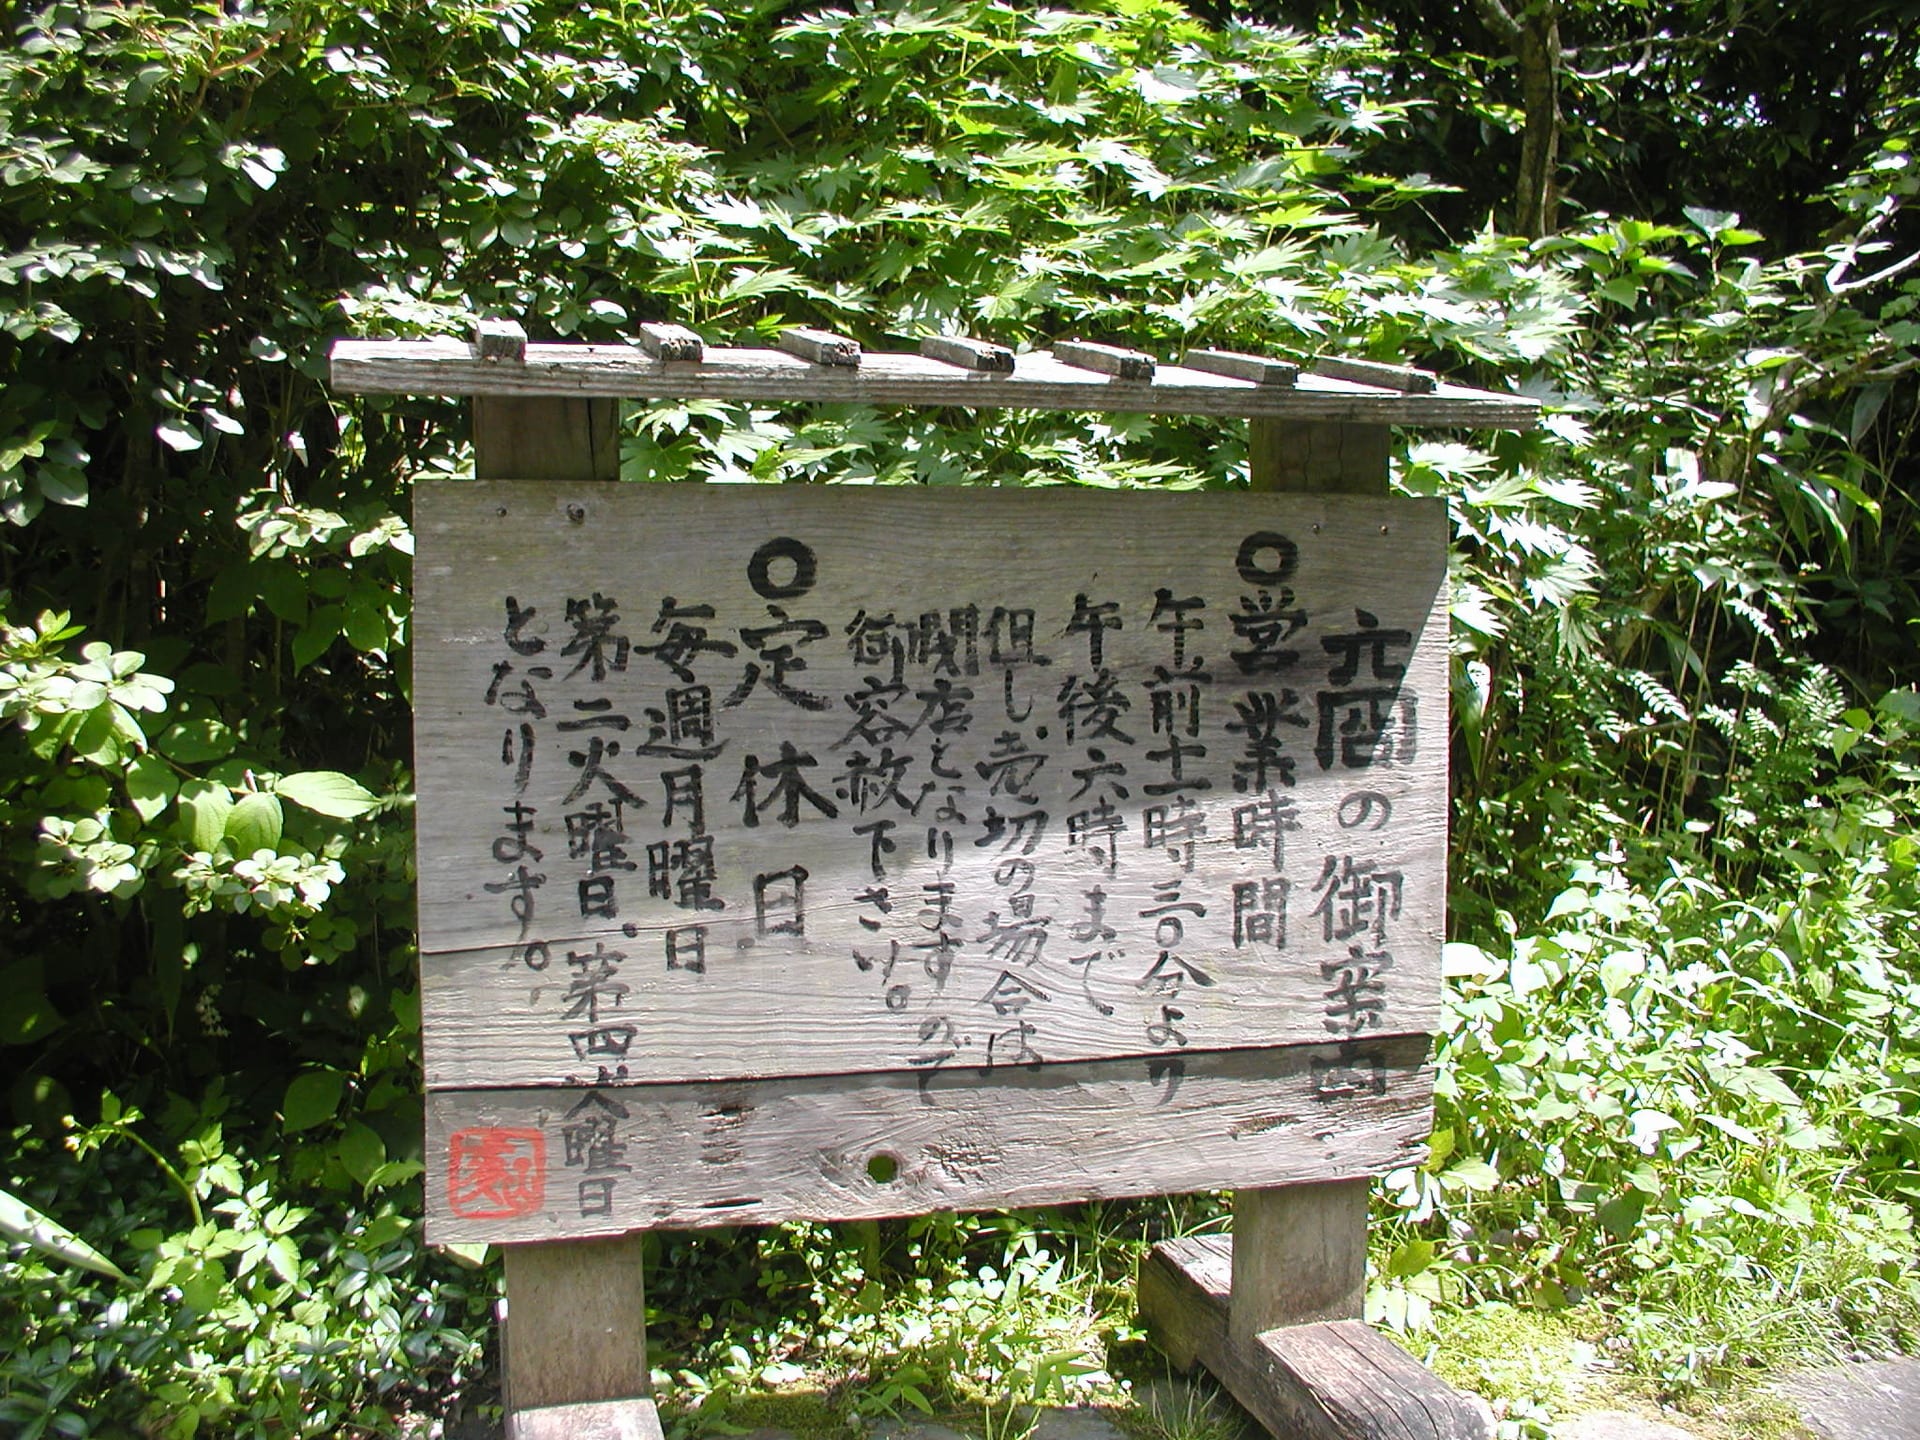 の御案内
○営業時間
午前十一時三〇分より
午後六時まで
但し、売切の場合は
閉店となりますので
御容赦下さい。
○定休日
毎週月曜日
第二火曜日、第四火曜日
となります。